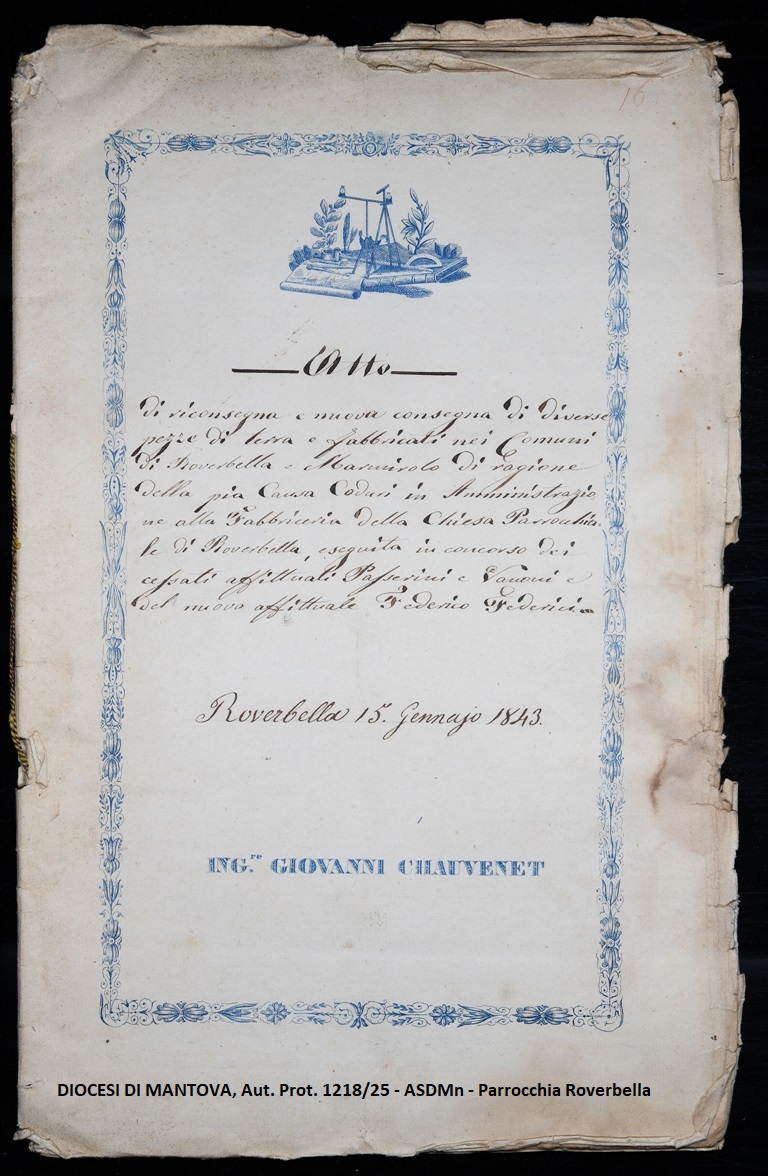 16
Atto
di riconsegna e nuova consegna di diverse
pezze di terra e fabbricati nei Comuni
di Roverbella e Marmirolo di ragione
della pia Causa Coduri in Amministrazio
ne alla Fabbriceria della Chiesa Parrocchia
le di Roverbella, eseguita in concorso dei
cessati affittuali Passerini e Vanoni e
del nuovo affittuale Federico Federici
Roverbella 15. Gennajo 1843.
ING.re GIOVANNI CHAUVENET
DIOCESI DI MANTOVA, Aut. Prot. 1218/25 - ASDMn - Parrocchia Roverbella